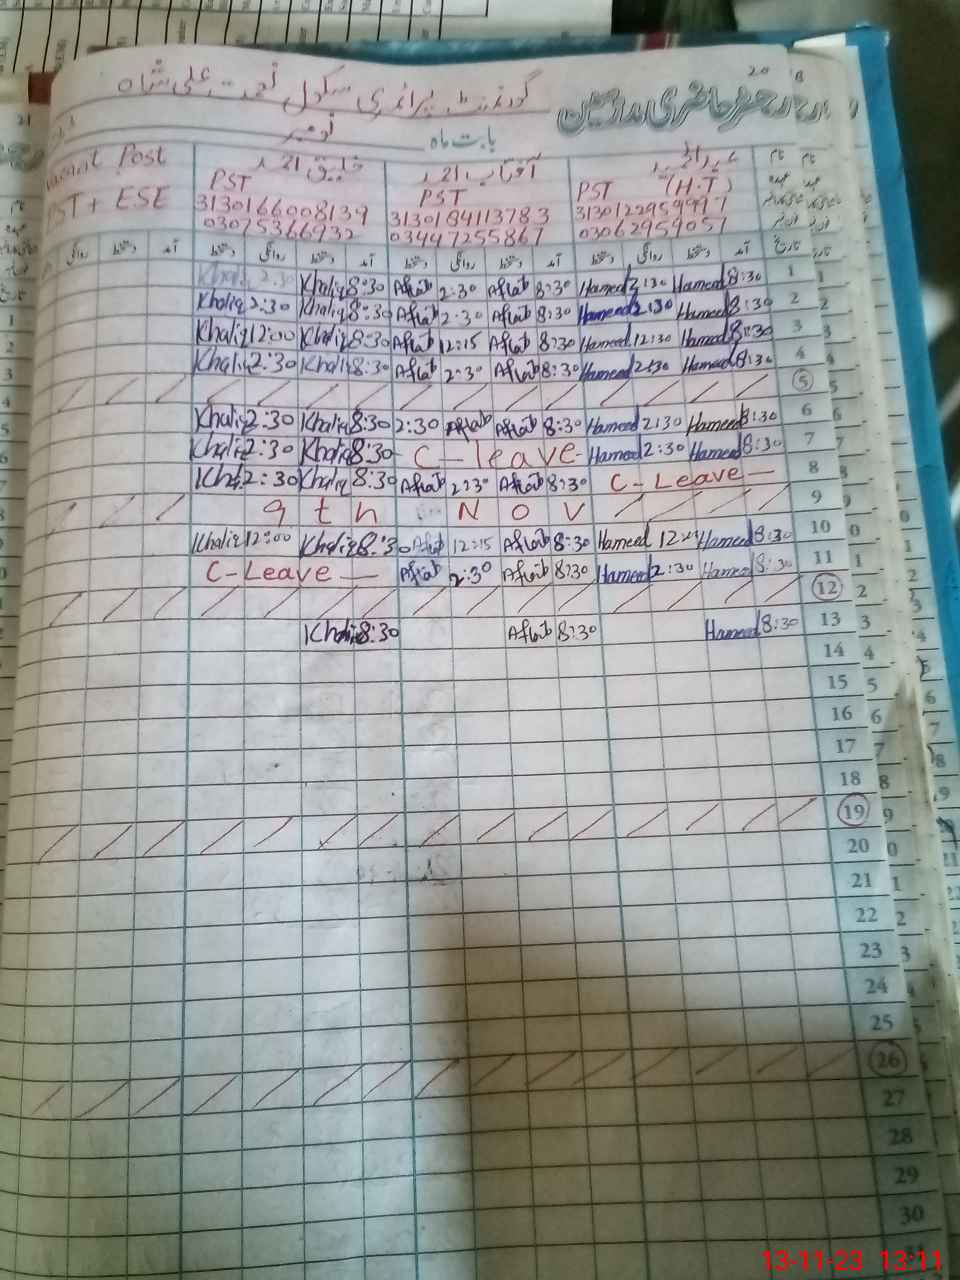 گورنمنٹ پرائمری سکول نعمت علی شاہ
رجسٹر حاضری مدرسین
بابت ماہ نومبر
20
Post
PST + ESE
خلیق احمد
PST
3130166008139
03075366932
آفتاب احمد
PST
3130184113783
03447255867
PST (H.T)
3130122959997
03062959057
آمد دستخط روانگی دستخط آمد دستخط روانگی دستخط آمد دستخط روانگی تاریخ
Khaliq 2:30 Khaliq 8:30 Aftab 2:30 Aftab 8:30 Hameed 2:30 Hameed 8:30 1
Khaliq 2:30 Khaliq 8:30 Aftab 2:30 Aftab 8:30 Hameed 2:30 Hameed 8:30 2
Khaliq 12:00 Khaliq 8:30 Aftab 12:15 Aftab 8:30 Hameed 12:30 Hameed 8:30 3
Khaliq 2:30 Khaliq 8:30 Aftab 2:30 Aftab 8:30 Hameed 2:30 Hameed 8:30 4
5
Khaliq 2:30 Khaliq 8:30 2:30 Aftab Aftab 8:30 Hameed 2:30 Hameed 8:30 6
Khaliq 2:30 Khaliq 8:30 - C - leave - Hameed 2:30 Hameed 8:30 7
Khaliq 2:30 Khaliq 8:30 Aftab 2:30 Aftab 8:30 C - Leave - 8
9th NOV 9
Khaliq 12:00 Khaliq 8:30 Aftab 12:15 Aftab 8:30 Hameed Hameed 8:30 10
C - Leave - Aftab 2:30 Aftab 8:30 Hameed 2:30 Hameed 8:30 11
12
Khaliq 8:30 Aftab 8:30 Hameed 8:30 13
14
15
16
17
18
19
20
21
22
23
24
25
26
27
28
29
30
13-11-23 13:11